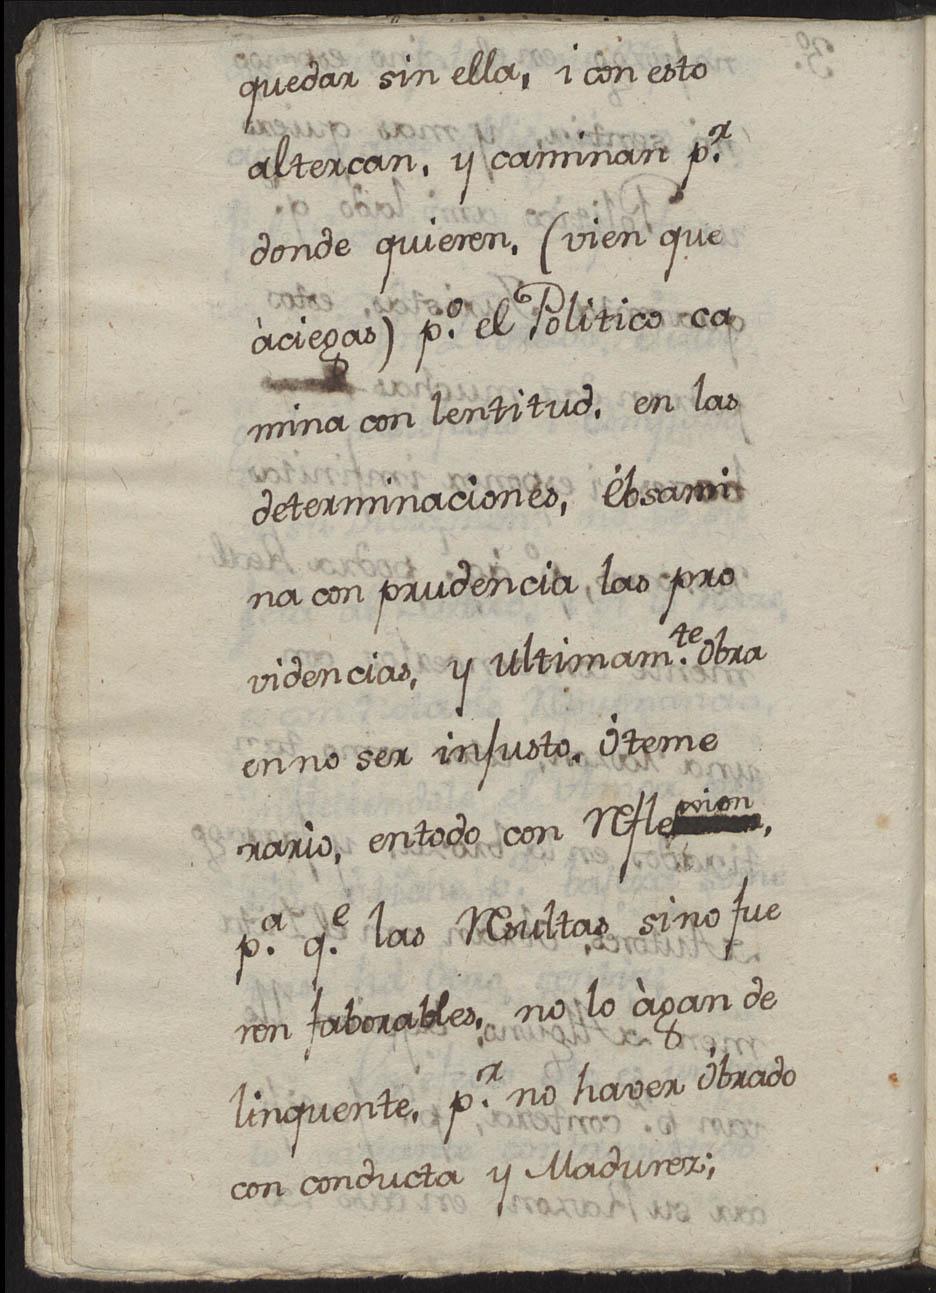 quedar sin ella, i con esto
altercan, y caminan p.r
donde quieren, (vien que
àciegas) p.o el Politico ca
mina con lentitud, en las
determinaciones, ébsami
na con prudencia, las pro
videncias, y ultimam.te óbra
en no ser injusto, óteme
rario, entodo con Reflexion,
p.a q.e las Resultas sino fue
ren faborables, no lo àgan de
linquente, p.r no haver óbrado
con conducta y Madurez;